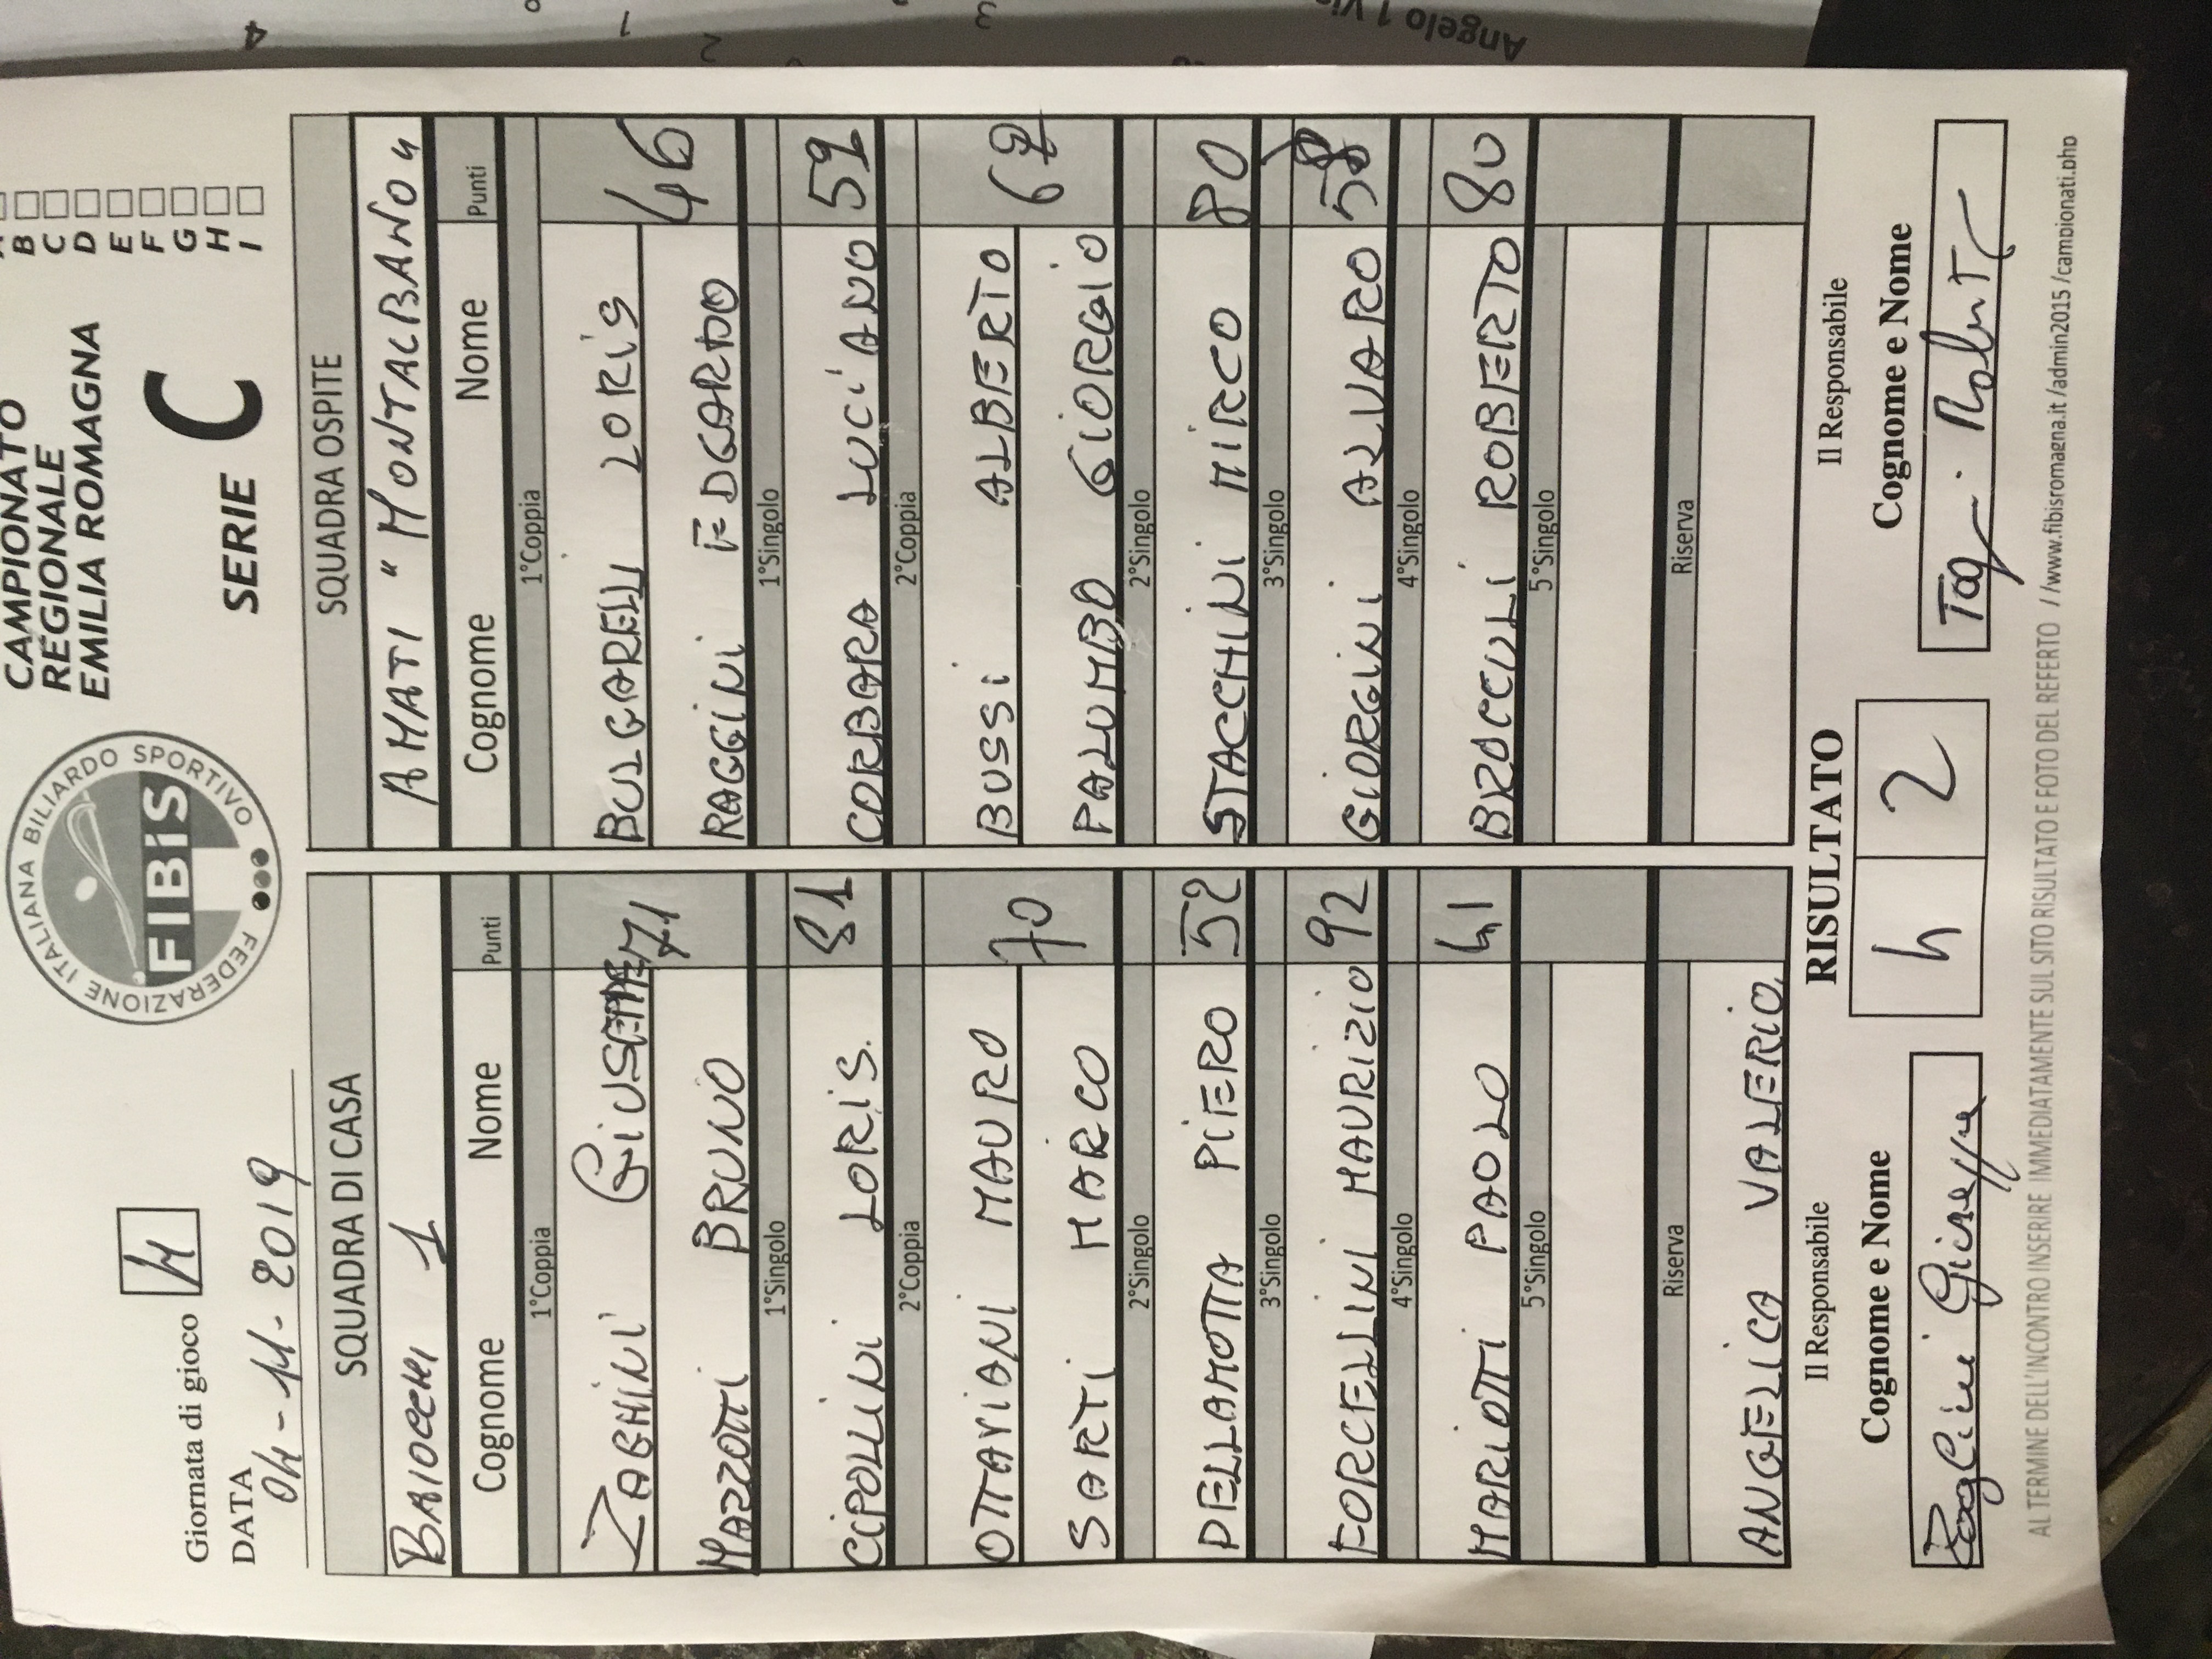 CAMPIONATO
REGIONALE
EMILIA ROMAGNA
FEDERAZIONE ITALIANA BILIARDO SPORTIVO
FIBiS
SERIE C
B
C
D
E
F
G
H
I
Giornata di gioco 4
DATA 04-11-2019
SQUADRA DI CASA SQUADRA OSPITE
BAIOCCHI 1 AMATI "MONTALBANO"
Cognome Nome Punti Cognome Nome Punti
1°Coppia 1°Coppia
ZAGHINI GIUSEPPE 71 BULGARELLI LORIS 46
MAZZOTTI BRUNO RAGGINI EDGARDO
1°Singolo 1°Singolo
CIPOLLINI LORIS. 81 CORBARA LUCIANO 59
2°Coppia 2°Coppia
OTTAVIANI MAURO 70 BUSSI ALBERTO
SARTI MARCO PALUMBO GIORGIO
2°Singolo 2°Singolo
DELLAMOTTA PIERO 52 STACCHINI MIRCO 80
3°Singolo 3°Singolo
FORCELLINI MAURIZIO 92 GIORGINI ALVARO
4°Singolo 4°Singolo
MARIOTTI PAOLO 41 BROCCOLI ROBERTO 80
5°Singolo 5°Singolo
Riserva Riserva
ANGELICA VALERIO
Il Responsabile RISULTATO Il Responsabile
Cognome e Nome 4 2 Cognome e Nome
Giuseppe
AL TERMINE DELL'INCONTRO INSERIRE IMMEDIATAMENTE SUL SITO RISULTATO E FOTO DEL REFERTO //www.fibisromagna.it/admin2015/campionati.php
Angelo 1
4
1
2
3